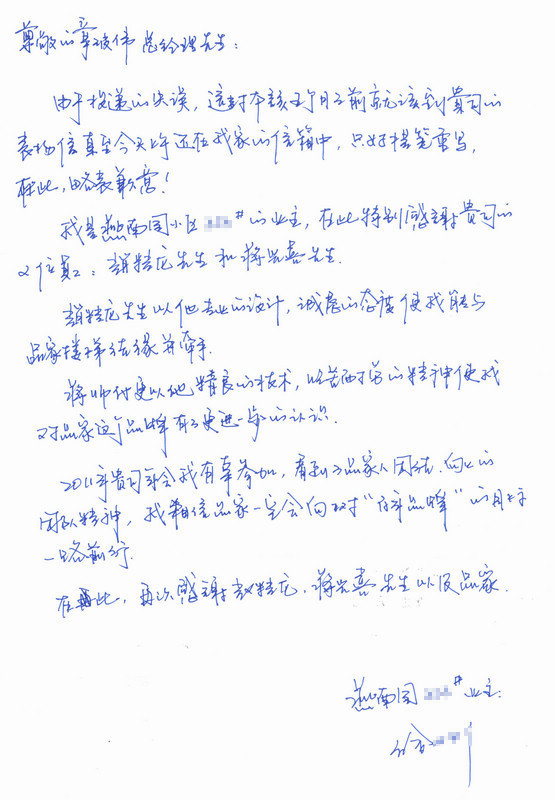 尊敬的章 伟总经理先生：
由于投递的失误，这封本该 月之前就该到贵司的
表扬信直至今天上午还在我家的信箱中，只好提笔重写，
在此，略表歉意！
我是燕南园小区 #的业主，在此特别感谢贵司的
2位员工：趙精龙先生和蒋 喜先生.
趙精龙先生以他专业的设计，诚恳的态度使我能与
品家楼梯结缘并牵手.
蒋师付更以他精良的技术，吃苦耐劳的精神使我
对品家这个品牌有了更进一步的认识.
2011年贵司年会我有幸参加，看到了品家人团结.向上的
团队精神，我相信品家一定会向 “百年品牌”的目标
一路前行.
在此，再次感謝赵精龙.蒋 喜先生以及品家.
燕南园 #业主：
徐